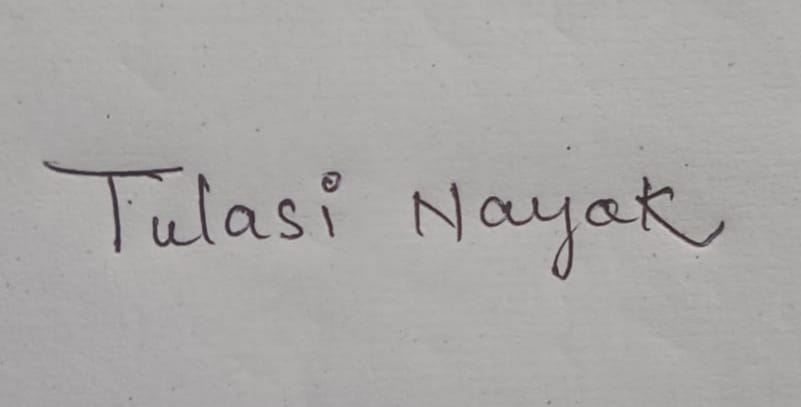 Tulasi Nayak